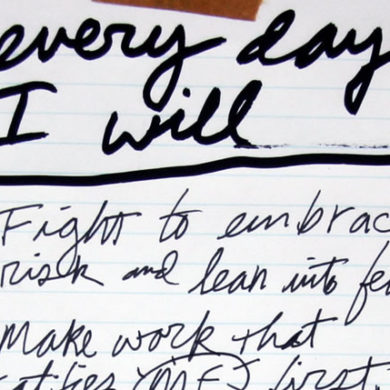 every day
I will
Fight to embrac
risk and lean into fe
Make work that
atifies (ME) first